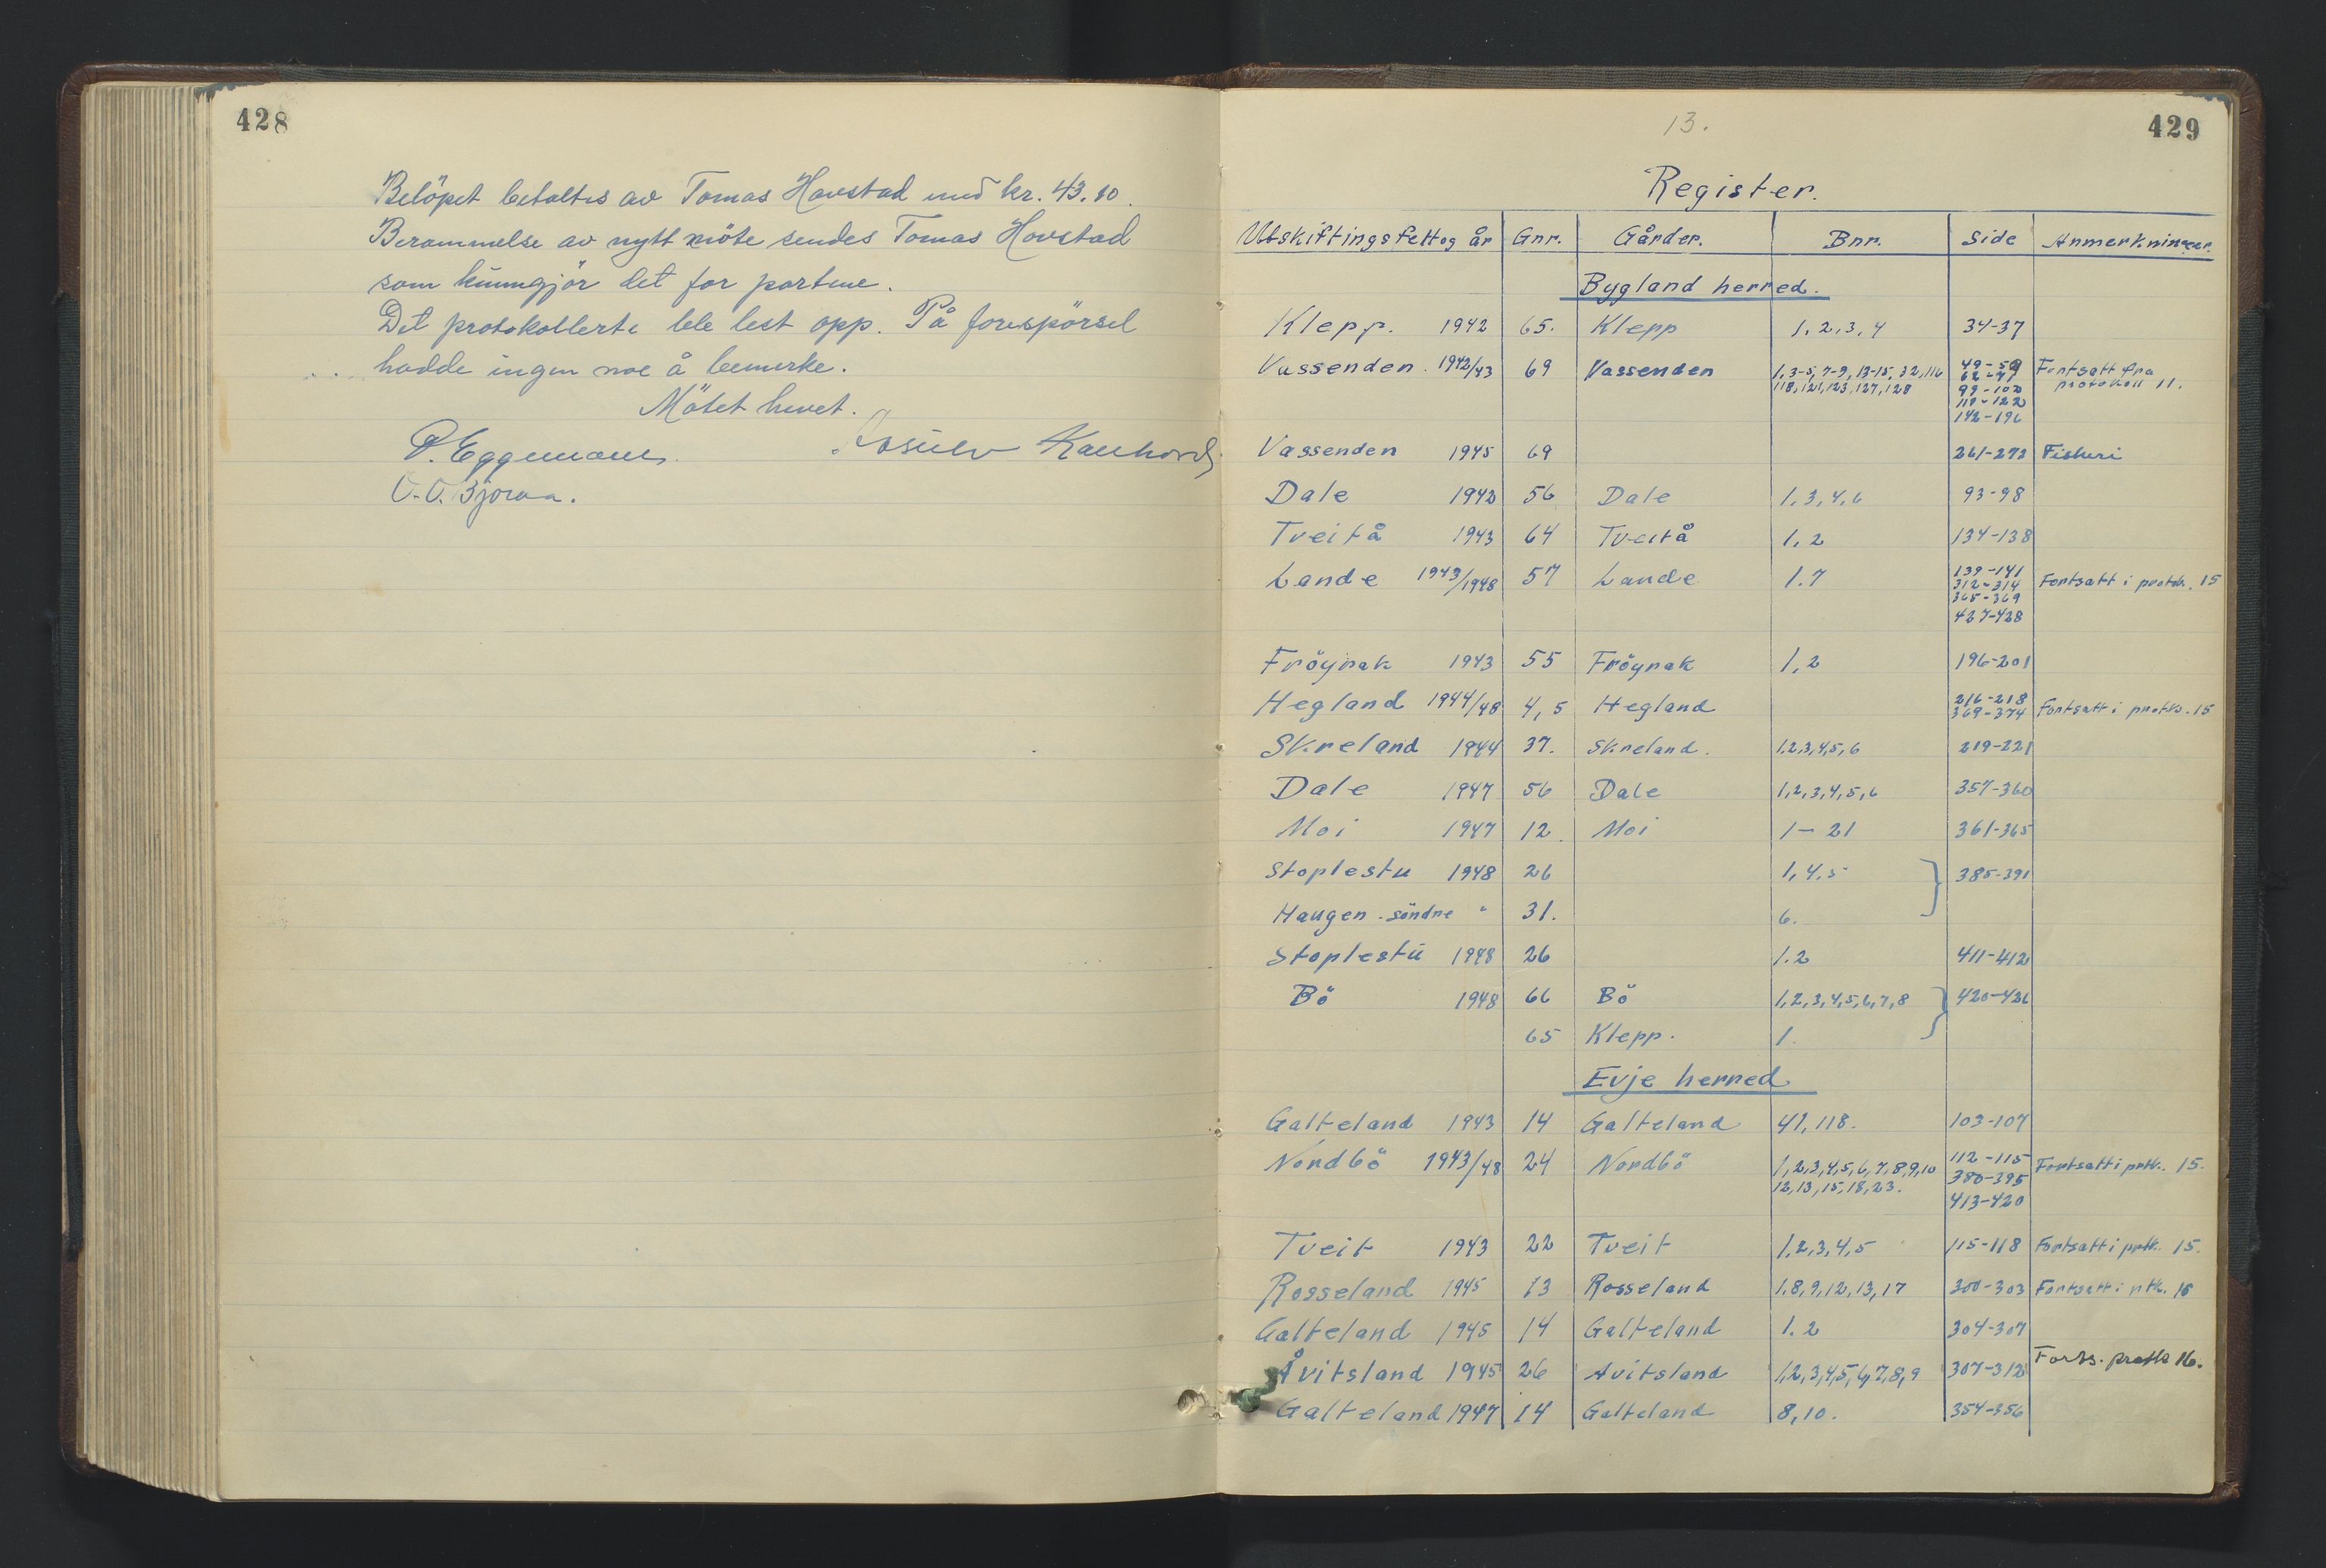 428
Belöpet betaltes av Tomas Hovstad med kr. 43.10.
Berammelse av nytt möte sendes Tomas Hovstad
som kunngjör det for partene.
Det protokollerte ble lest opp. På forespörsel
hadde ingen noe å bemerke.
Mötet hevet.
P. Eggemoen.
O. O. Bjoraa.
13.
429
Register.
Utskiftingsfelt og år Gnr. Gårder. Bnr. Side Anmerkninger.
Bygland herred.
Klepp. 1942 65. Klepp 1, 2, 3, 4 34-37
Vassenden. 1942/43 69 Vassenden 1, 3-5, 7-9, 13-15, 32, 116 49-59 Fortsatt fra
118, 121, 123, 127, 128 62-77 protokoll 11.
99-102
119-122
142-196
Vassenden 1945 69 261-272 Fiskeri
Dale 1942 56 Dale 1, 3, 4, 6 93-98
Tveitå 1943 64 Tveitå 1, 2 134-138
Lande 1943/1948 57 Lande 1.7 139-141
312-314 Fortsatt i protok. 15
365-369
427-428
Fröynak 1943 55 Fröynak 1, 2 196-201
Hegland 1944/48 4, 5 Hegland 216-218
369-374 Fortsatt i protk. 15
Skreland 1944 37. Skreland. 1,2,3,4,5,6 219-221
Dale 1947 56 Dale 1,2,3,4,5,6 357-360
Moi 1947 12. Moi 1-21 361-365
Stoplestu 1948 26 1, 4, 5 385-391
Haugen söndre " 31. 6.
Stoplestu 1948 26 1.2 411-412
Bö 1948 66 Bö 1,2,3,4,5,6,7,8 420-426
65 Klepp. 1.
Evje herred
Galteland 1943 14 Galteland 41, 118. 103-107
Nordbö 1943/48 24 Nordbö 1,2,3,4,5,6,7,8,9,10 112-115 Fortsatt i prtk. 15.
12, 13, 15, 18, 23. 380-395
413-420
Tveit 1943 22 Tveit 1,2,3,4,5 115-118 Fortsatt i prtk. 15.
Rosseland 1945 13 Rosseland 1,8,9,12,13,17 300-303 Fortsatt i ptk. 15
Galteland 1945 14 Galteland 1. 2 304-307
Åvitsland 1945 26 Avitsland 1,2,3,4,5,6,7,8,9 307-312 Forts. protk 16.
Galteland 1947 14 Galteland 8, 10. 354-356